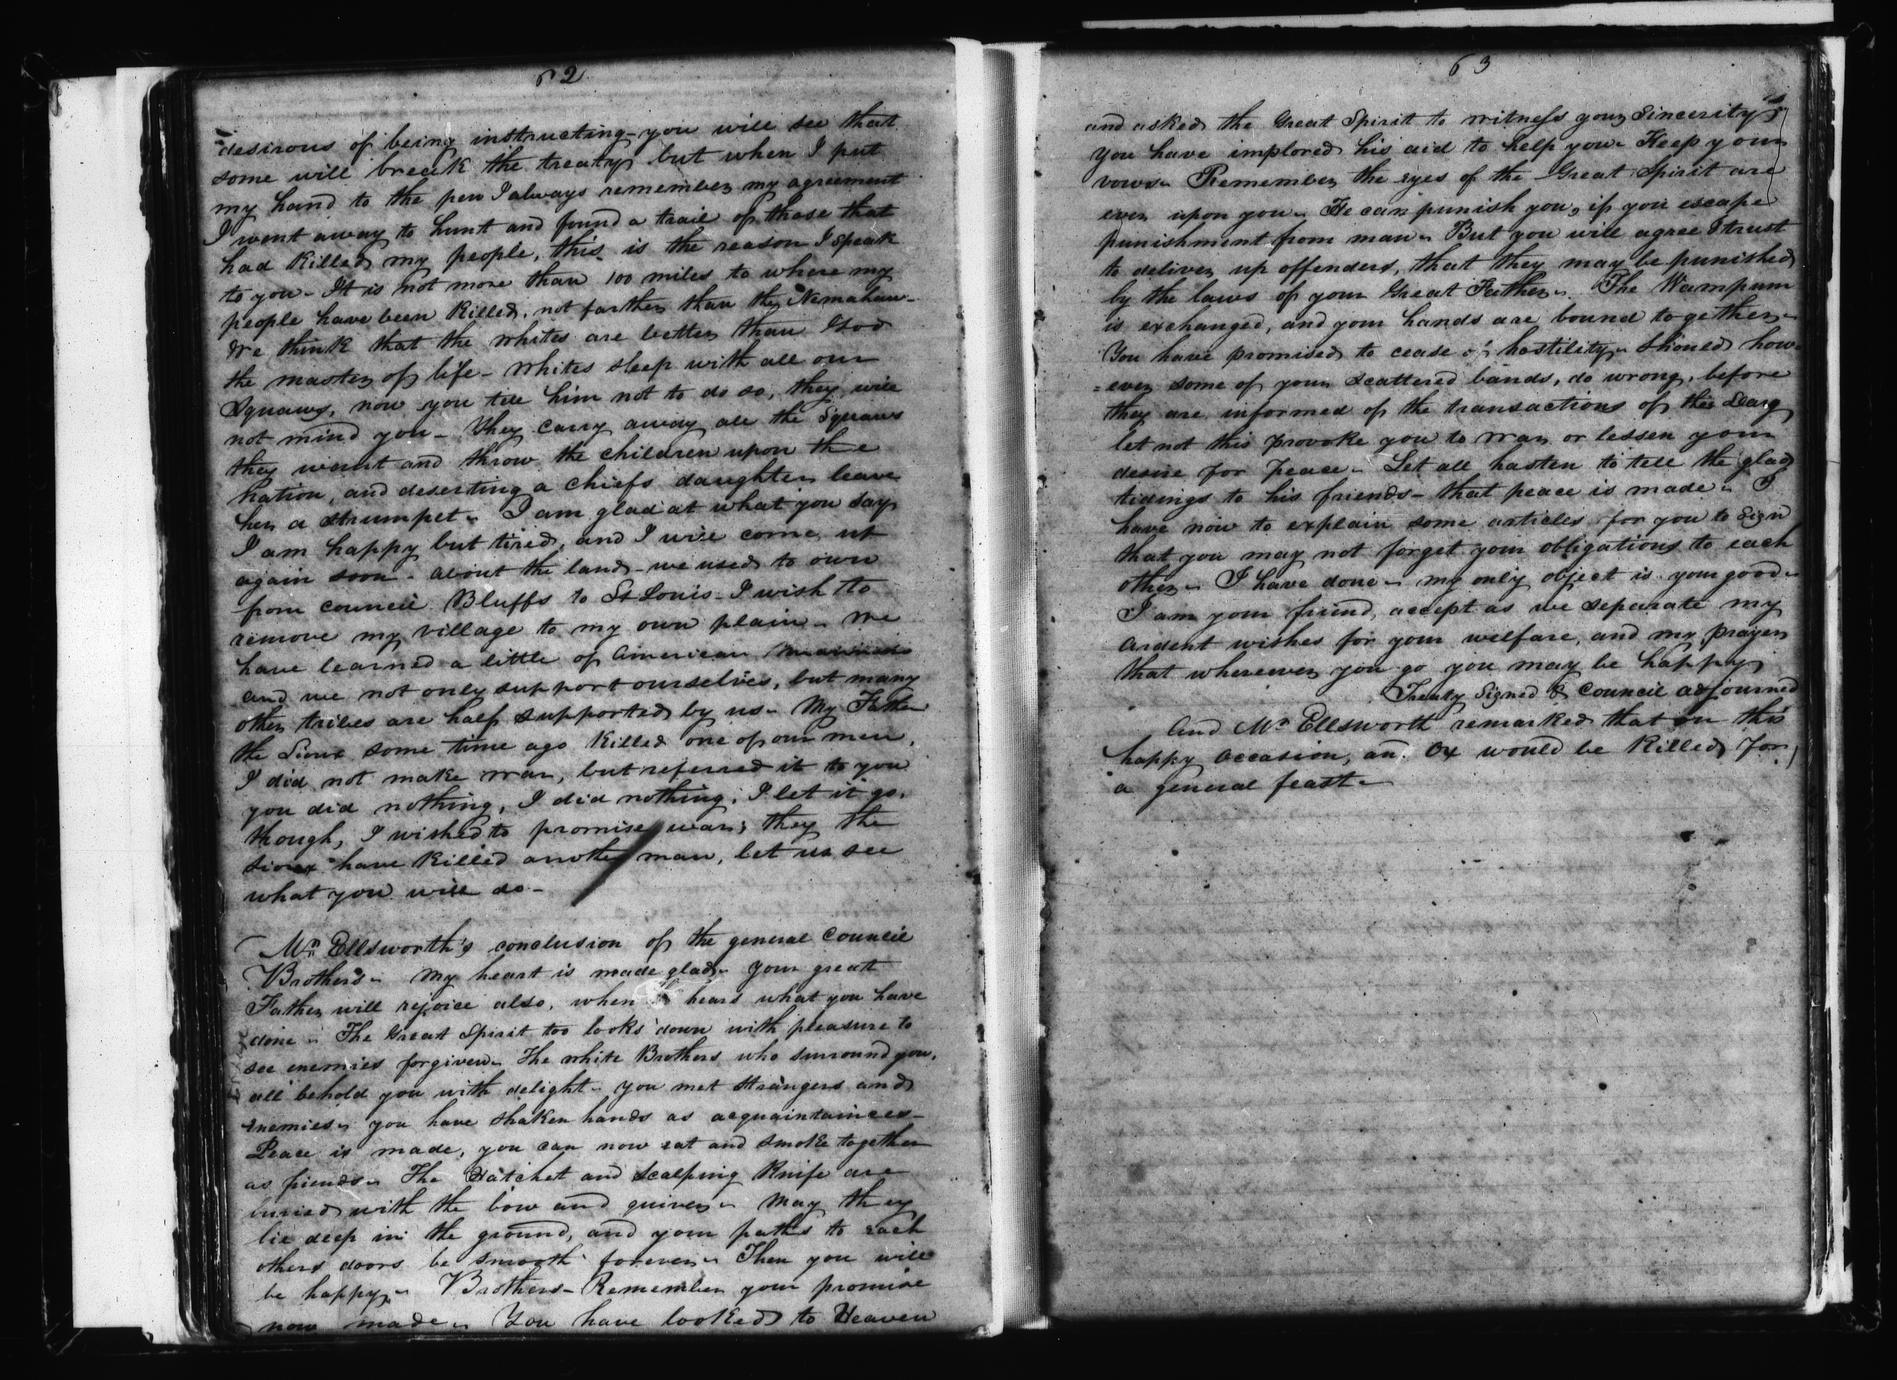 62
desirous of being instructing - you will see that
some will break the treaty but when I put
my hand to the pen I always remember my agreement
I went away to hunt and found a trail of those that
had killed my people, this is the reason I speak
to you - It is not more than 100 miles to where my
people have been killed, not farther than the Nemahaw -
We think that the whites are better than God
the master of life - whites sleep with all our
Squaws, now you tell him not to do so, they will
not mind you - They carry away all the Squaws
they want and throw the children upon the
Nation, and deserting a chiefs daughter leave
her a strumpet - I am glad at what you say
I am happy but tired, and I will come up
again soon - about the land - we used to own
from Council Bluffs to St Louis - I wish to
remove my village to my own plain - We
have learned a little of American
and we not only support ourselves, but many
other tribes are half supported by us - My Father
the Sioux some time ago killed one of our men,
I did not make war, but referred it to you
you did nothing, I did nothing, I let it go,
though, I wished to promise war; they the
Sioux have killed another man, let us see
what you will do -
Mr Ellsworth's conclusion of the general Council
Brothers - My heart is made glad - your great
Father will rejoice also, when he hears what you have
done - The Great Spirit too looks down with pleasure to
see enemies forgiven - The white Brothers who surround you,
all behold you with delight - you met strangers and
enemies - you have shaken hands as acquaintainces -
Peace is made, you can now eat and smoke together
as friends - The Hatchet and Scalping Knife are
buried with the bow and quiver - May they
lie deep in the ground, and your paths to each
others doors be smooth forever - Then you will
be happy - Brothers - Remember your promise
now made - You have looked to Heaven
63
and asked the Great Spirit to witness your Sincerity
You have implored his aid to help you - Keep your
vows - Remember the eyes of the Great Spirit are
ever upon you - He can punish you, if you escape
punishment from man - But you will agree I trust
to deliver up offenders, that they may be punished
by the laws of your Great Father - The Wampum
is exchanged, and your hands are bound together -
You have promised to cease of hostility - Should how-
=ever some of your scattered bands, do wrong, before
they are informed of the transactions of this day
let not this provoke you to war or lessen your
desire for peace - Let all hasten to tell the glad
tidings to his friends - that peace is made - I
have now to explain some articles for you to sign
that you may not forget your obligations to each
other - I have done - my only object is your good -
I am your friend, accept as we separate my
ardent wishes for your welfare, and my prayer
that wherever you go you may be happy
Treaty Signed & Council adjourned
And Mr Ellsworth remarked that on this
happy occasion, an Ox would be killed for
a general feast -